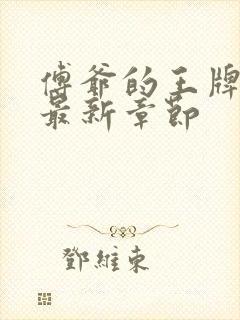 傅爷的王牌
最新章节
鄧維東